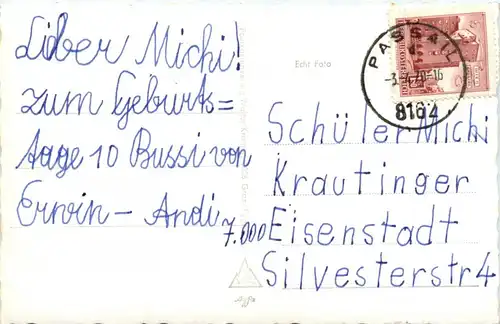 Liber Michi!
zum Geburts=
tage 10 Bussi von
Erwin - Andi
Echt Foto
PASSAIL
8162
Schüler Michi
Krautinger
7.000 Eisenstadt
Silvesterstr 4